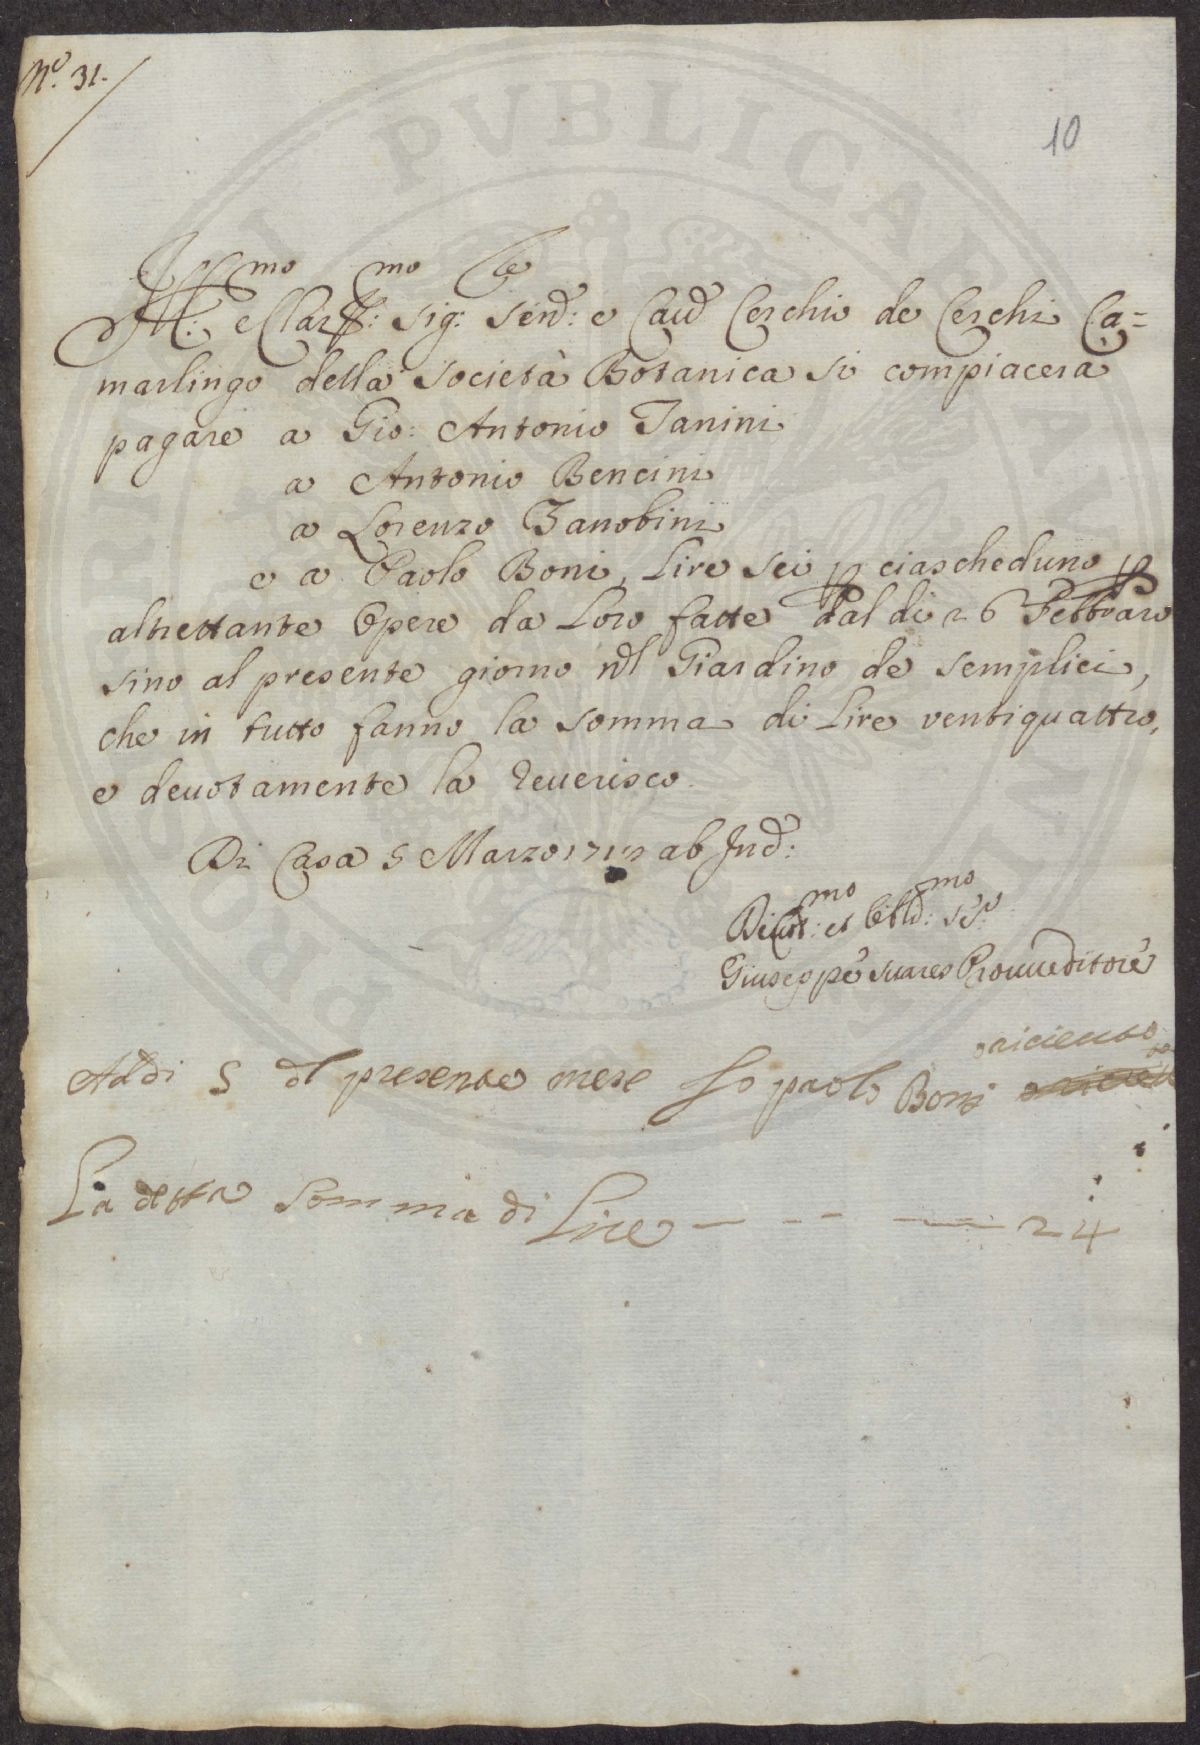 N.º 31.
10
Ill:mo e Clariss:mo Sig:re Send: e Caud Cerchio de Cerchi Ca=
marlingo della Società Botanica si compiacerà
pagare a Gio: Antonio Tanini
a Antonio Bencini
a Lorenzo Zanobini
e a Paolo Boni, Lire sei p ciascheduno p
altrettante Opere da Loro fatte dal di 26 Febbraro
sino al presente giorno nel Giardino de Semplici,
che in tutto fanno la somma di Lire ventiquattro,
e devotamente la reuerisco.
Di Casa 5 Marzo ab Ind:
Deuot:mo et Obbld:mo
Giuseppe Suares Prouueditore
Addi 5 dl presente mese Io paolo Boni
La detta Somma di Lire - - - - 24